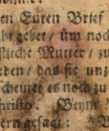 en Euren Brief
hr gebet / üm noch
stliche Mutter / zu
eden / daß sie unz
scheinet es noch zu
hristo. Wenn
ern gesagt: